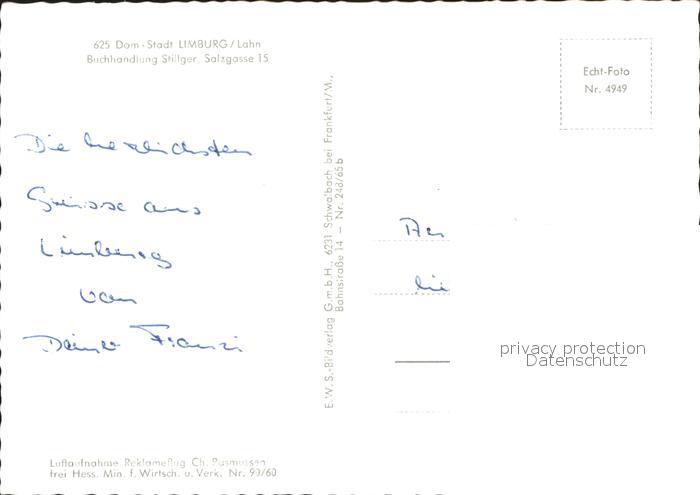 625 Dom-Stadt LIMBURG/Lahn
Buchhandlung Stillger, Salzgasse 15
Echt-Foto
Nr. 4949
Die herzlichsten
Grüsse aus
Limburg
von
Deiner Franzi
E.W.S.-Bildverlag G.m.b.H., 6231 Schwalbach bei Frankfurt/M.,
Bahnstraße 14 – Nr. 248/65b
An
lie
privacy protection
Datenschutz
Luftaufnahme Reklameflug Ch. Rasmussen
frei Hess. Min. f. Wirtsch. u. Verk. Nr. 99/60